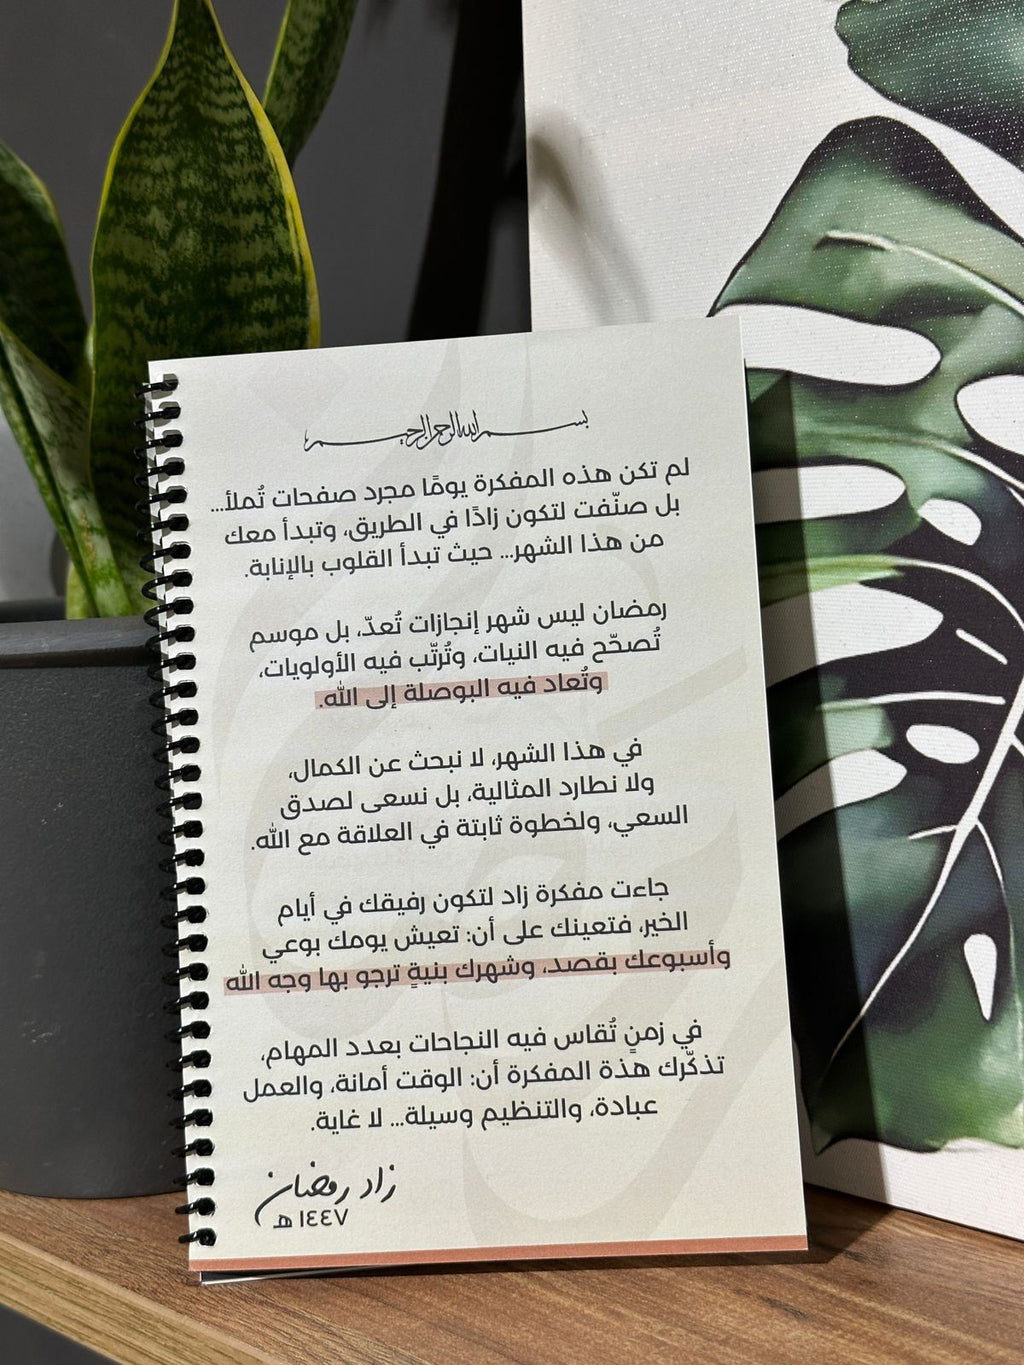 بسم الله الرحمن الرحيم
لم تكن هذه المفكرة يومًا مجرد صفحات تُملأ...
بل صنّفت لتكون زادًا في الطريق، وتبدأ معك
من هذا الشهر... حيث تبدأ القلوب بالإنابة.
رمضان ليس شهر إنجازات تُعدّ، بل موسم
تُصحّح فيه النيات، وتُرتّب فيه الأولويات،
وتُعاد فيه البوصلة إلى الله.
في هذا الشهر، لا نبحث عن الكمال،
ولا نطارد المثالية، بل نسعى لصدق
السعي، ولخطوة ثابتة في العلاقة مع الله.
جاءت مفكرة زاد لتكون رفيقك في أيام
الخير، فتعينك على أن: تعيش يومك بوعي
وأسبوعك بقصد، وشهرك بنيةٍ ترجو بها وجه الله
في زمنٍ تُقاس فيه النجاحات بعدد المهام،
تذكّرك هذة المفكرة أن: الوقت أمانة، والعمل
عبادة، والتنظيم وسيلة... لا غاية.
زاد رمضان
١٤٤٧ هـ